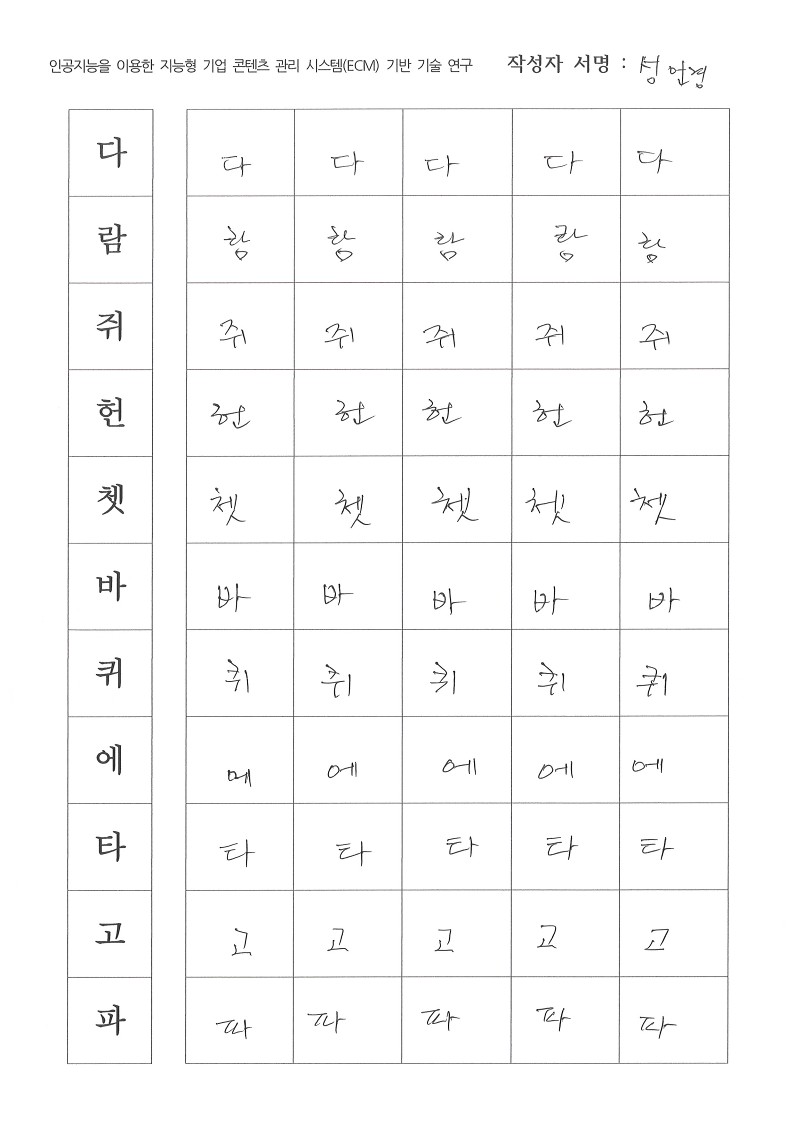 인공지능을 이용한 지능형 기업 콘텐츠 관리 시스템(ECM) 기반 기술 연구 작성자 서명 : 성안경
다 다 다 다 다 다
람 람 람 람 람 람
쥐 쥐 쥐 쥐 쥐 쥐
헌 헌 헌 헌 헌 헌
쳇 쳇 쳇 쳇 쳇 쳇
바 바 바 바 바 바
퀴 퀴 퀴 퀴 퀴 퀴
에 에 에 에 에 에
타 타 타 타 타 타
고 고 고 고 고 고
파 파 파 파 파 파